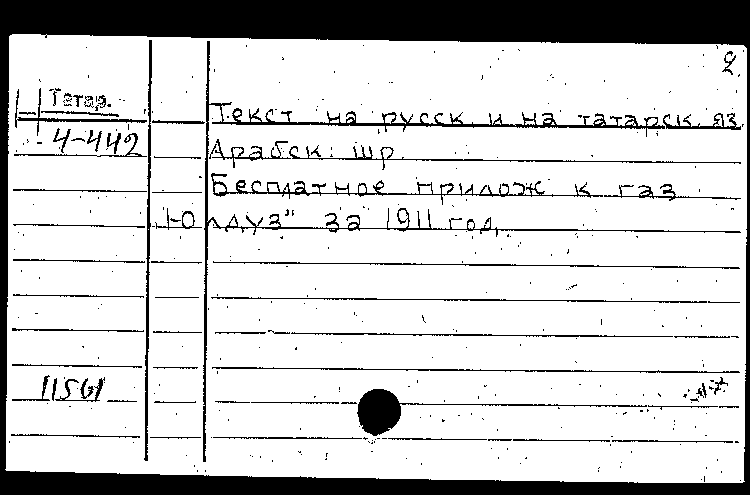 2
Татар.
4-442
Текст на русск. и на татарск. яз.
Арабск. шр.
Бесплатное прилож. к газ.
„Юлдуз" за 1911 год.
11561